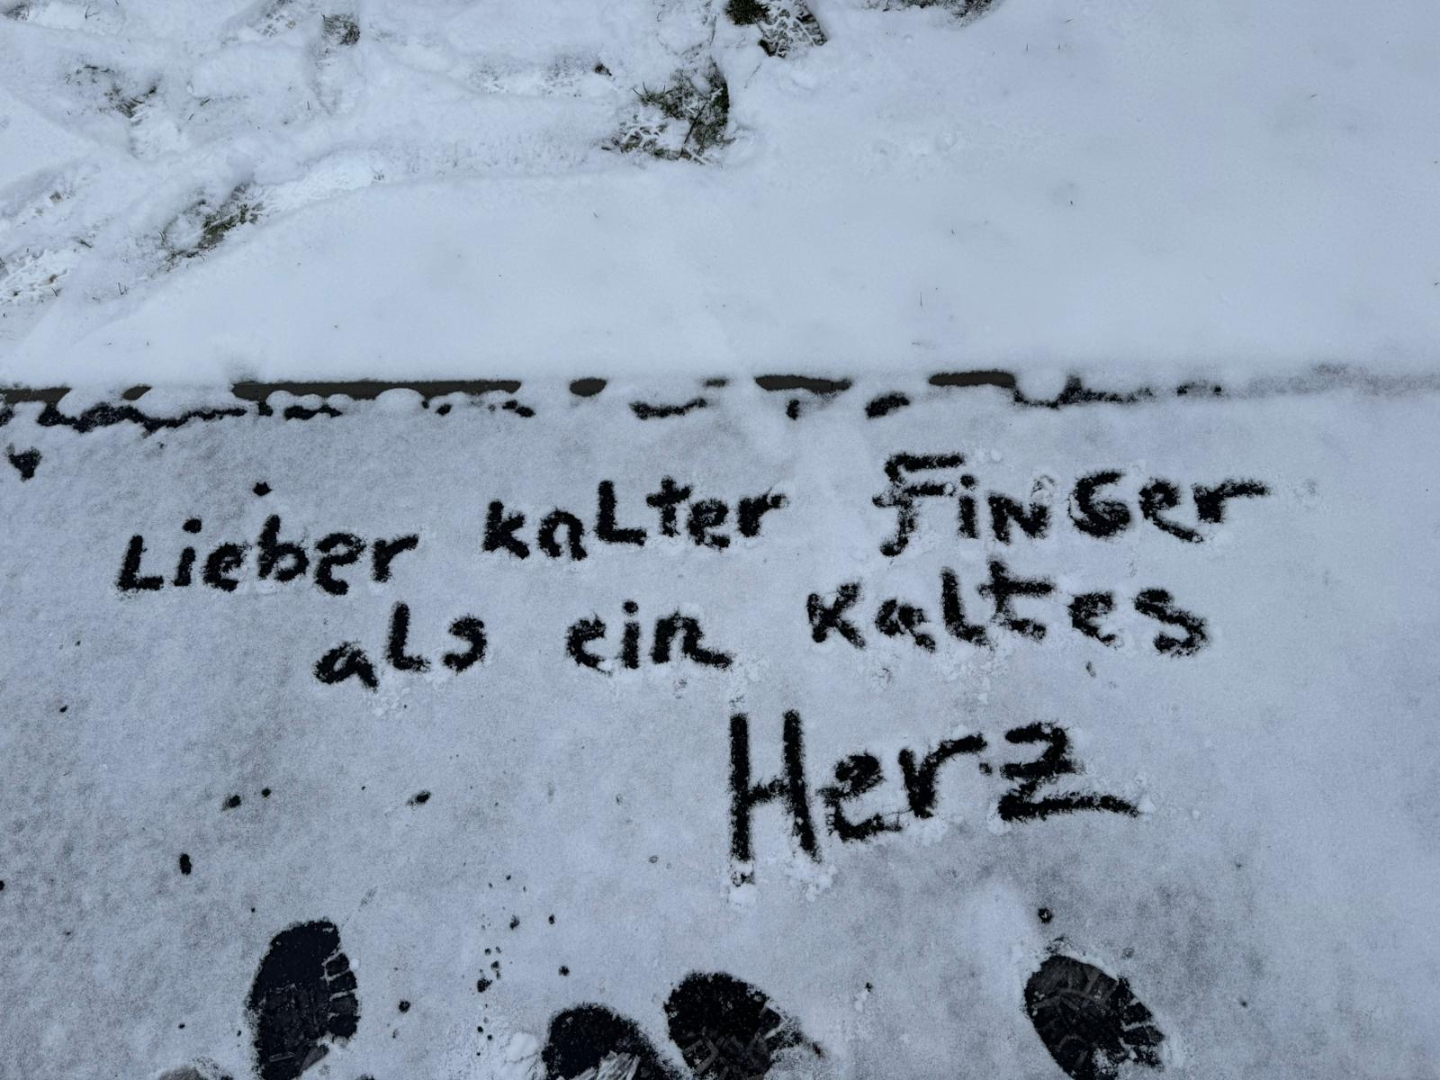 Lieber kalter Finger
als ein kaltes
Herz